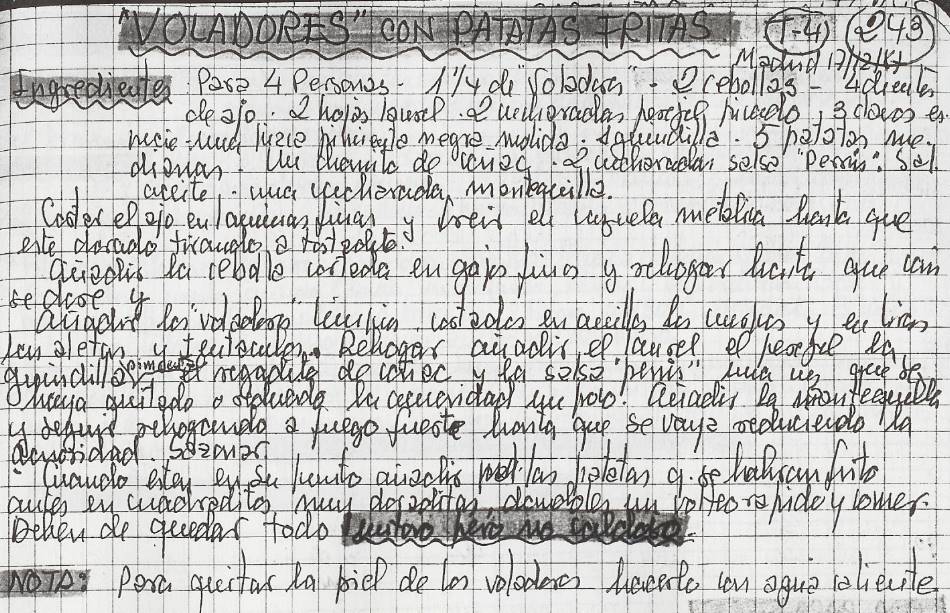 "VOLADORES" CON PATATAS FRITAS T-4 243
Madrid 17/12/
Ingredientes Para 4 Personas - 1 1/4 de "Voladores" - 2 cebollas - 4 dientes
de ajo - 2 hojas laurel - 2 cucharadas perejil picado, 3 clavos es-
pecie - una pizca pimienta negra molida - 1 guindilla - 5 patatas me-
dianas - Un chorrito de coñac - 2 cucharadas salsa "Perris". Sal.
aceite - una cucharada mantequilla.
Cortar el ajo en laminas finas y freir en cazuela metálica hasta que
este dorado tirando a tostadito.
Añadir la cebolla cortada en gajos finos y rehogar hasta que casi
se dore y
Añadir los "voladores" limpios, cortados en anillos los cuerpos y en tiras
las aletas y tentaculos. Rehogar añadir el laurel el perejil la
guindilla pimienta el regadito de coñac y la salsa "perris" una vez que se
haya quitado o reducido la acuosidad un poco. Añadir la mantequilla
y seguir rehogando a fuego fuerte hasta que se vaya reduciendo la
acuosidad. Sazonar.
Cuando esten en su punto añadir las patatas q. se habran frito
antes en cuadraditos muy doraditas dandoles un volteo rapido y comer.
Deben de quedar todo jugoso pero no caldoso.
NOTA: Para quitar la piel de los voladores hacerlo con agua caliente